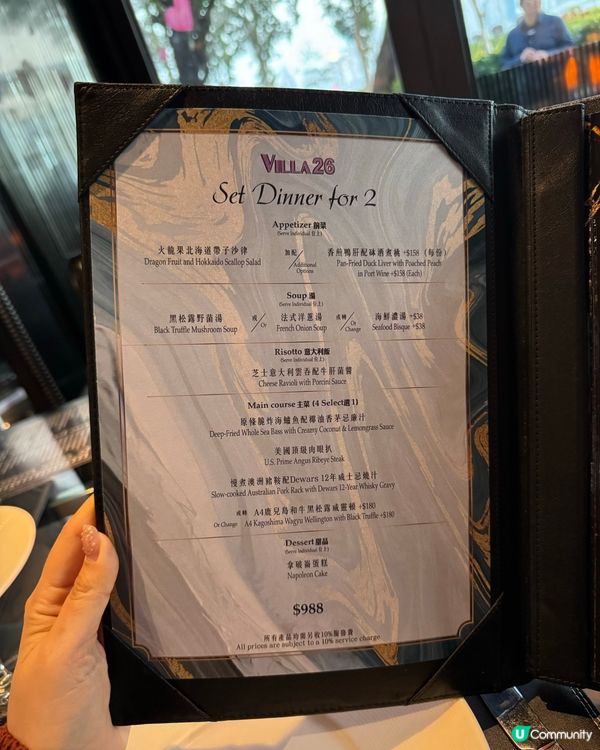 VILLA26
Set Dinner for 2
Appetizer 前菜
(Serve Individual 位上)
火龍果北海道帶子沙律
Dragon Fruit and Hokkaido Scallop Salad
加配
Additional
Options
香煎鴨肝配砵酒煮桃 +$158 (每份)
Pan-Fried Duck Liver with Poached Peach
in Port Wine +$158 (Each)
Soup 湯
(Serve Individual 位上)
黑松露野菌湯
Black Truffle Mushroom Soup
或
Or
法式洋蔥湯
French Onion Soup
或轉
Or
Change
海鮮濃湯 +$38
Seafood Bisque +$38
Risotto 意大利飯
(Serve Individual 位上)
芝士意大利雲吞配牛肝菌醬
Cheese Ravioli with Porcini Sauce
Main course 主菜 (4 Select選 1)
原條脆炸海鱸魚配椰油香茅忌廉汁
Deep-Fried Whole Sea Bass with Creamy Coconut & Lemongrass Sauce
美國頂級肉眼扒
U.S. Prime Angus Ribeye Steak
慢煮澳洲豬鞍配Dewars 12年威士忌燒汁
Slow-cooked Australian Pork Rack with Dewars 12-Year Whisky Gravy
或轉 A4鹿兒島和牛黑松露威靈頓 +$180
Or Change A4 Kagoshima Wagyu Wellington with Black Truffle +$180
Dessert 甜品
(Serve Individual 位上)
拿破崙蛋糕
Napoleon Cake
$988
所有產品均需另收10%服務費
All prices are subject to a 10% service charge
U Community